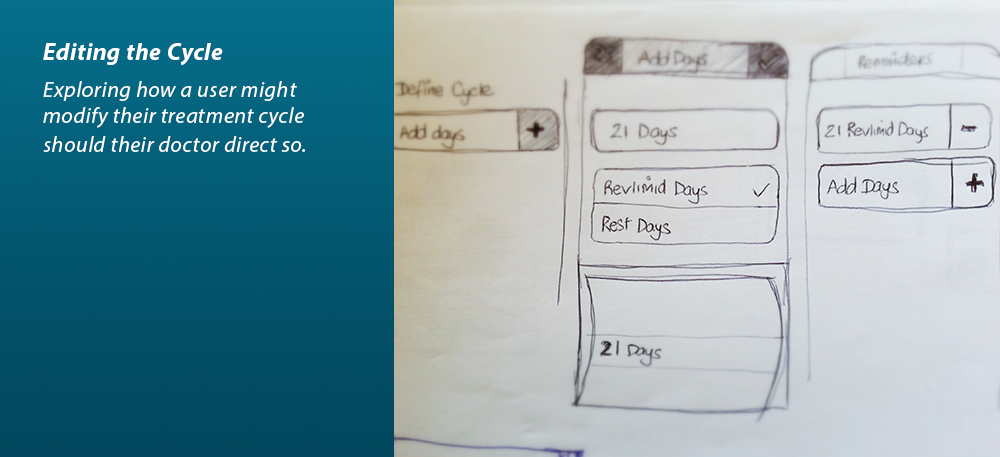 Editing the Cycle
Exploring how a user might
modify their treatment cycle
should their doctor direct so.
Define Cycle
Add days +
Add Days
21 Days
Revlimid Days ✓
Rest Days
21 Days
Reminders
21 Revlimid Days -
Add Days +